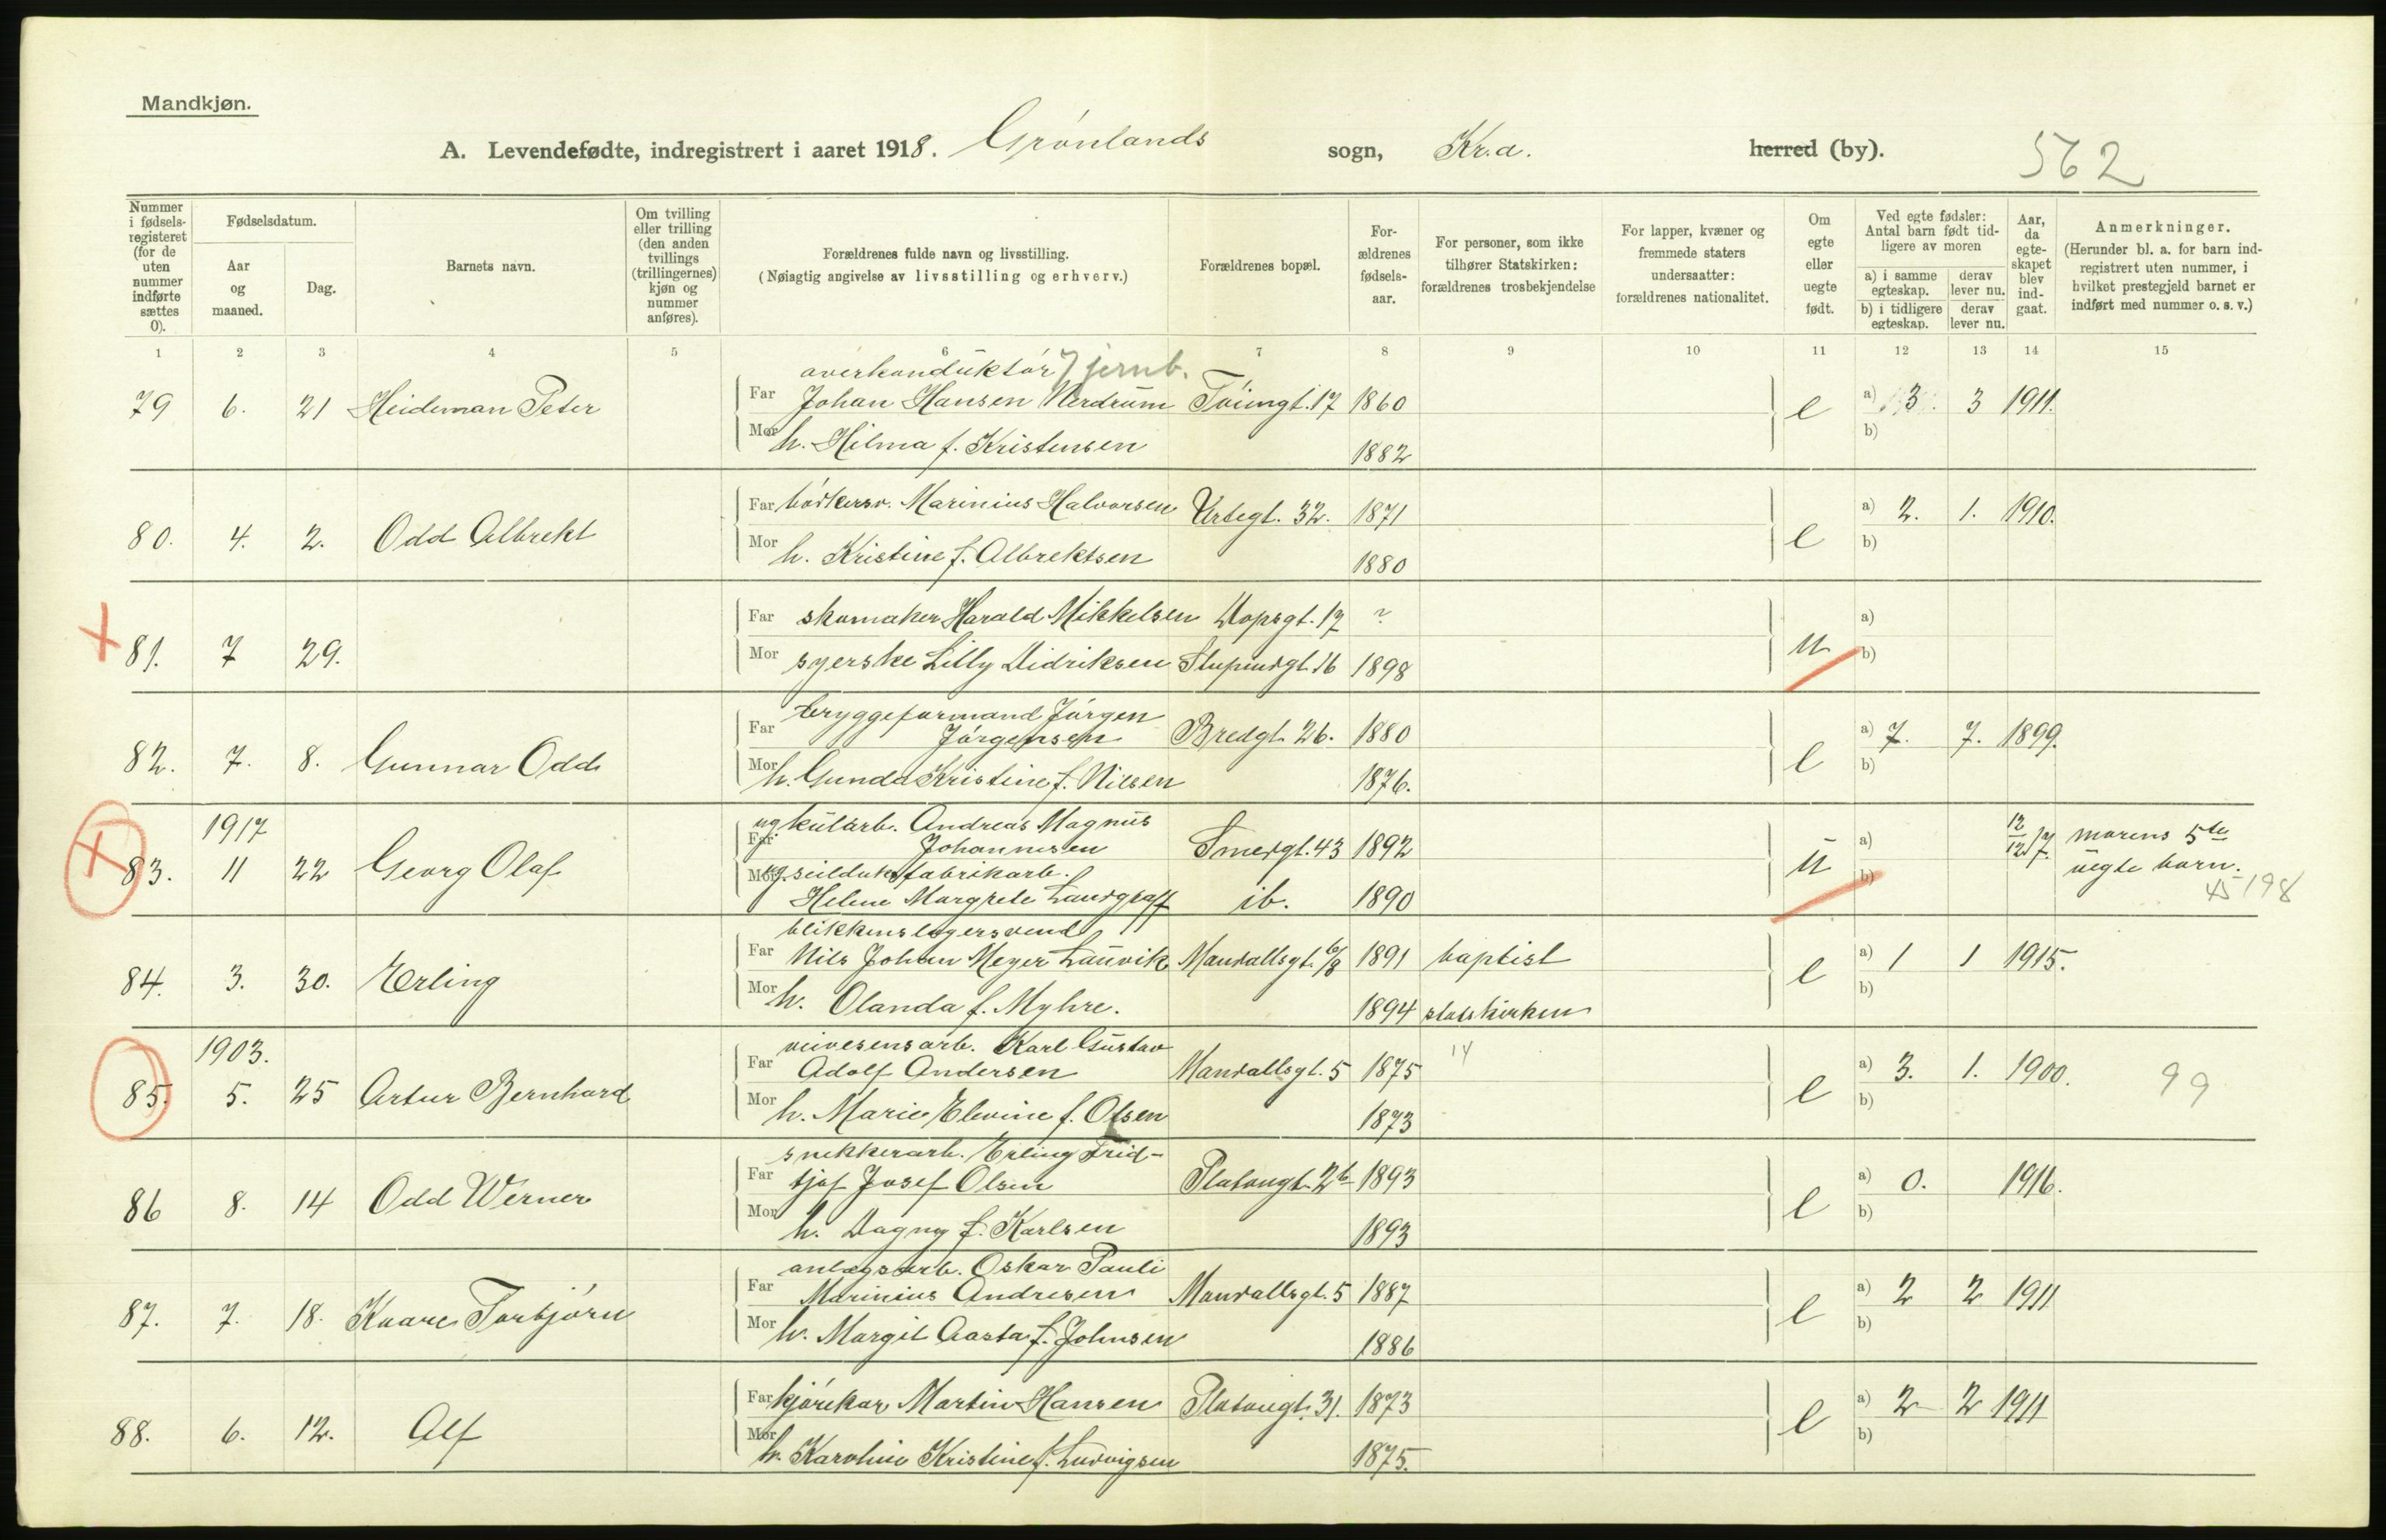 Mandkjøn.
A. Levendefødte, indregistrert i aaret 1918. Grønlands sogn, Kr.a. herred (by). 562
Nummer i fødsels-registeret (for de uten nummer indførte sættes 0).
Fødselsdatum.
Aar og maaned.
Dag.
Barnets navn.
Om tvilling eller trilling (den anden tvillings (trillingernes) kjøn og nummer anføres).
Forældrenes fulde navn og livsstilling.
(Nøiagtig angivelse av livsstilling og erhverv.)
Forældrenes bopæl.
For-ældrenes fødsels-aar.
For personer, som ikke tilhører Statskirken: forældrenes trosbekjendelse
For lapper, kvæner og fremmede staters undersaatter: forældrenes nationalitet.
Om egte eller uegte født.
Ved egte fødsler: Antal barn født tid-ligere av moren
a) i samme egteskap.
derav lever nu.
b) i tidligere egteskap.
derav lever nu.
Aar, da egte-skapet blev ind-gaat.
Anmerkninger.
(Herunder bl. a. for barn ind-registrert uten nummer, i hvilket prestegjeld barnet er indført med nummer o. s. v.)
1 2 3 4 5 6 7 8 9 10 11 12 13 14 15
overkonduktør Jernb.
79 6. 21 Heideman Peter Far Johan Hansen Nerdrum Tøiengt. 17 1860 e a) 3. 3 1911.
Mor h. Hilma f. Kristensen 1882 b)
Far bødkersv. Marinius Halvorsen Urtegt. 32. 1871 a) 2. 1. 1910.
80. 4. 2. Odd Albrekt Mor h. Kristine f. Albrektsen 1880 e b)
Far skomaker Harald Mikkelsen Dopsgt. 17 ? a)
X 81. 7 29. Mor syerske Lilly Didriksen Stupendgt. 16 1898 u b)
bryggeformand Jørgen
Far Jørgensen Bredgt. 26. 1880 a) 7. 7. 1899.
82. 7. 8. Gunnar Odd Mor h. Gunda Kristine f. Nilsen 1876. e b)
1917 ug kularb. Andreas Magnus
Far Johannesen Smedgt. 43 1892 a) 12/12 17. morens 5te
X 83. 11 22 Georg Olaf Mor ug. seilduksfabrikarb. u b) uegte barn.
Helene Margrete Landgraff ib. 1890 45198
blikkenslagersvend
Far Nils Johan Meyer Lauvik Mandallsgt. 6/8 1891 baptist a) 1 1 1915.
84. 3. 30. Erling Mor h. Olanda f. Myhre. 1894 statskirken e b)
1903. veivesensarb. Karl Gustav 14
Far Adolf Andersen Mandallsgt. 5 1875 a) 3. 1. 1900. 99
85. 5. 25 Artur Bernhard Mor h. Marie Elevine f. Olsen 1873 e b)
snekkerarb. Erling Frid-
Far tjof Josef Olsen Platougt. 2b 1893 a) 0. 1916.
86 8. 14 Odd Werner Mor h. Dagny f. Karlsen 1893 e b)
anlægsarb. Oskar Pauli
Far Marinius Andresen Mandallsgt. 5 1887 a) 2 2 1911
87. 7. 18. Kaare Torbjørn Mor h. Margit Aasta f. Johnsen 1886 e b)
Far kjørekar Martin Hansen Platougt. 31. 1873 a) 2 2 1911
88. 6. 12. Alf Mor h. Karoline Kristine f. Ludvigsen 1875. e b)